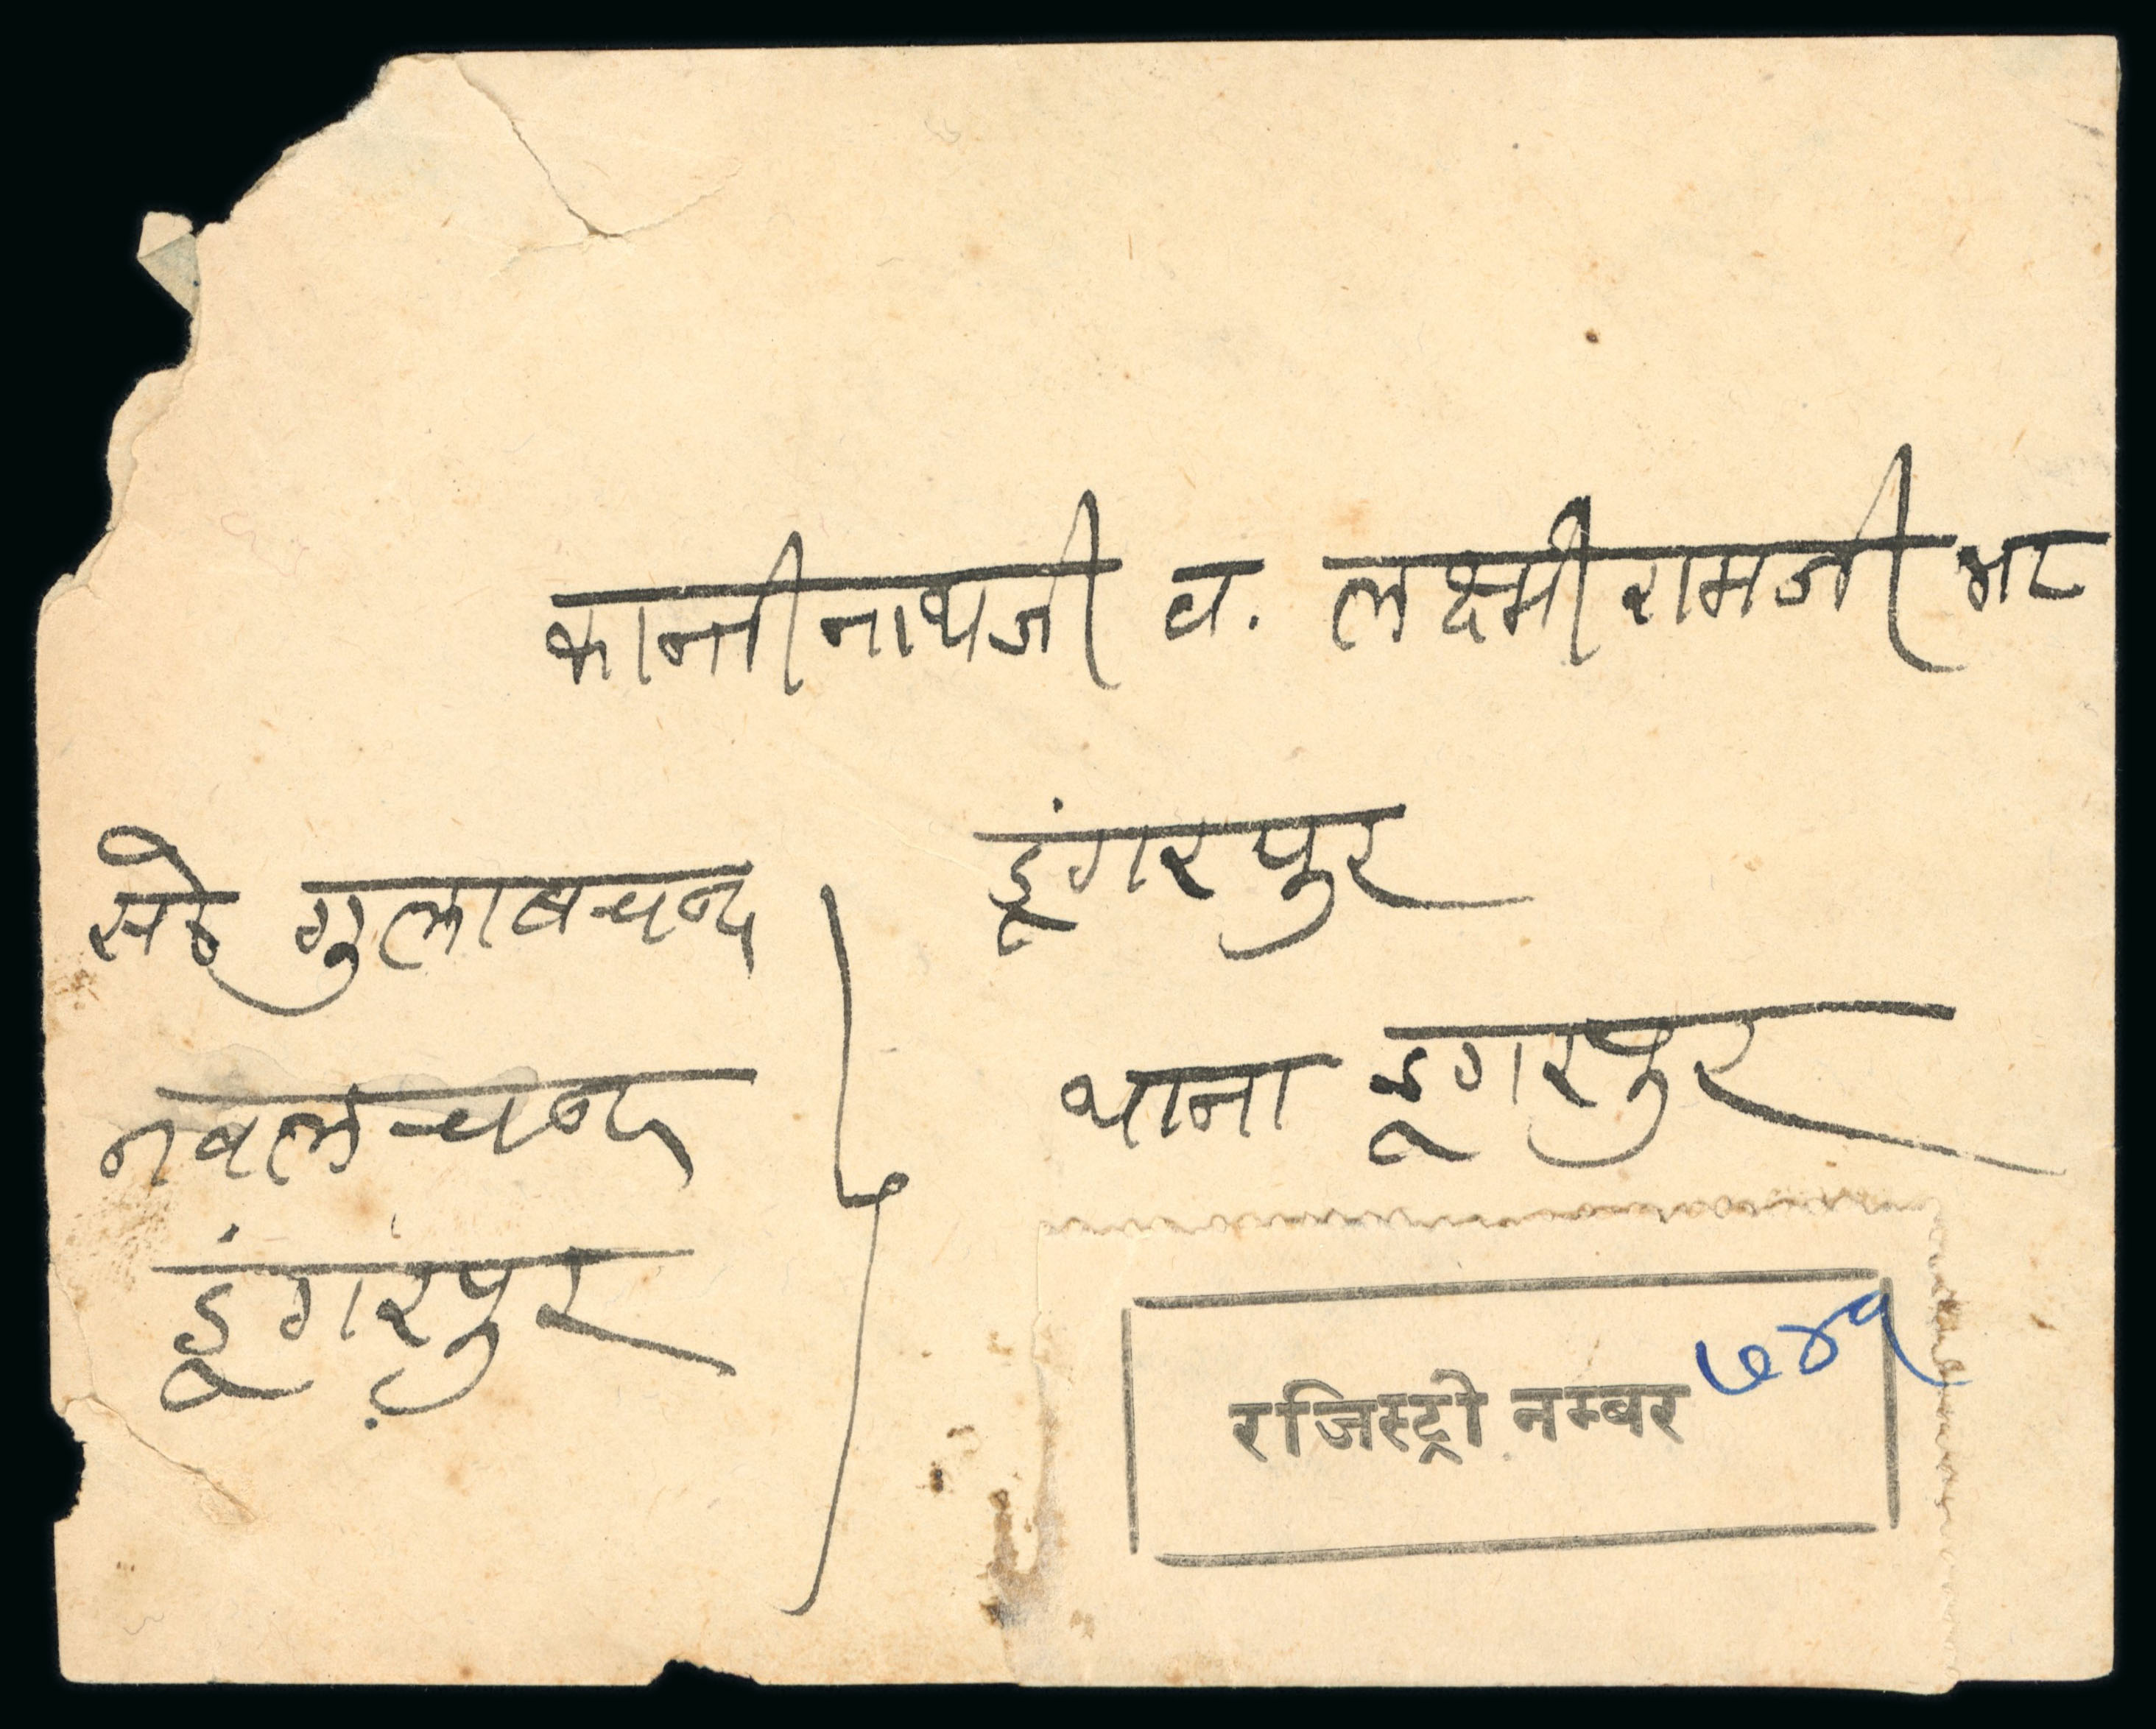 कान्तीनाथजी व. लक्ष्मीरामजी भट
डूंगरपुर
थाना डूगरपुर
सेठ गुलाबचन्द
नवलचन्द
डूंगरपुर
रजिस्ट्री नम्बर ७४१